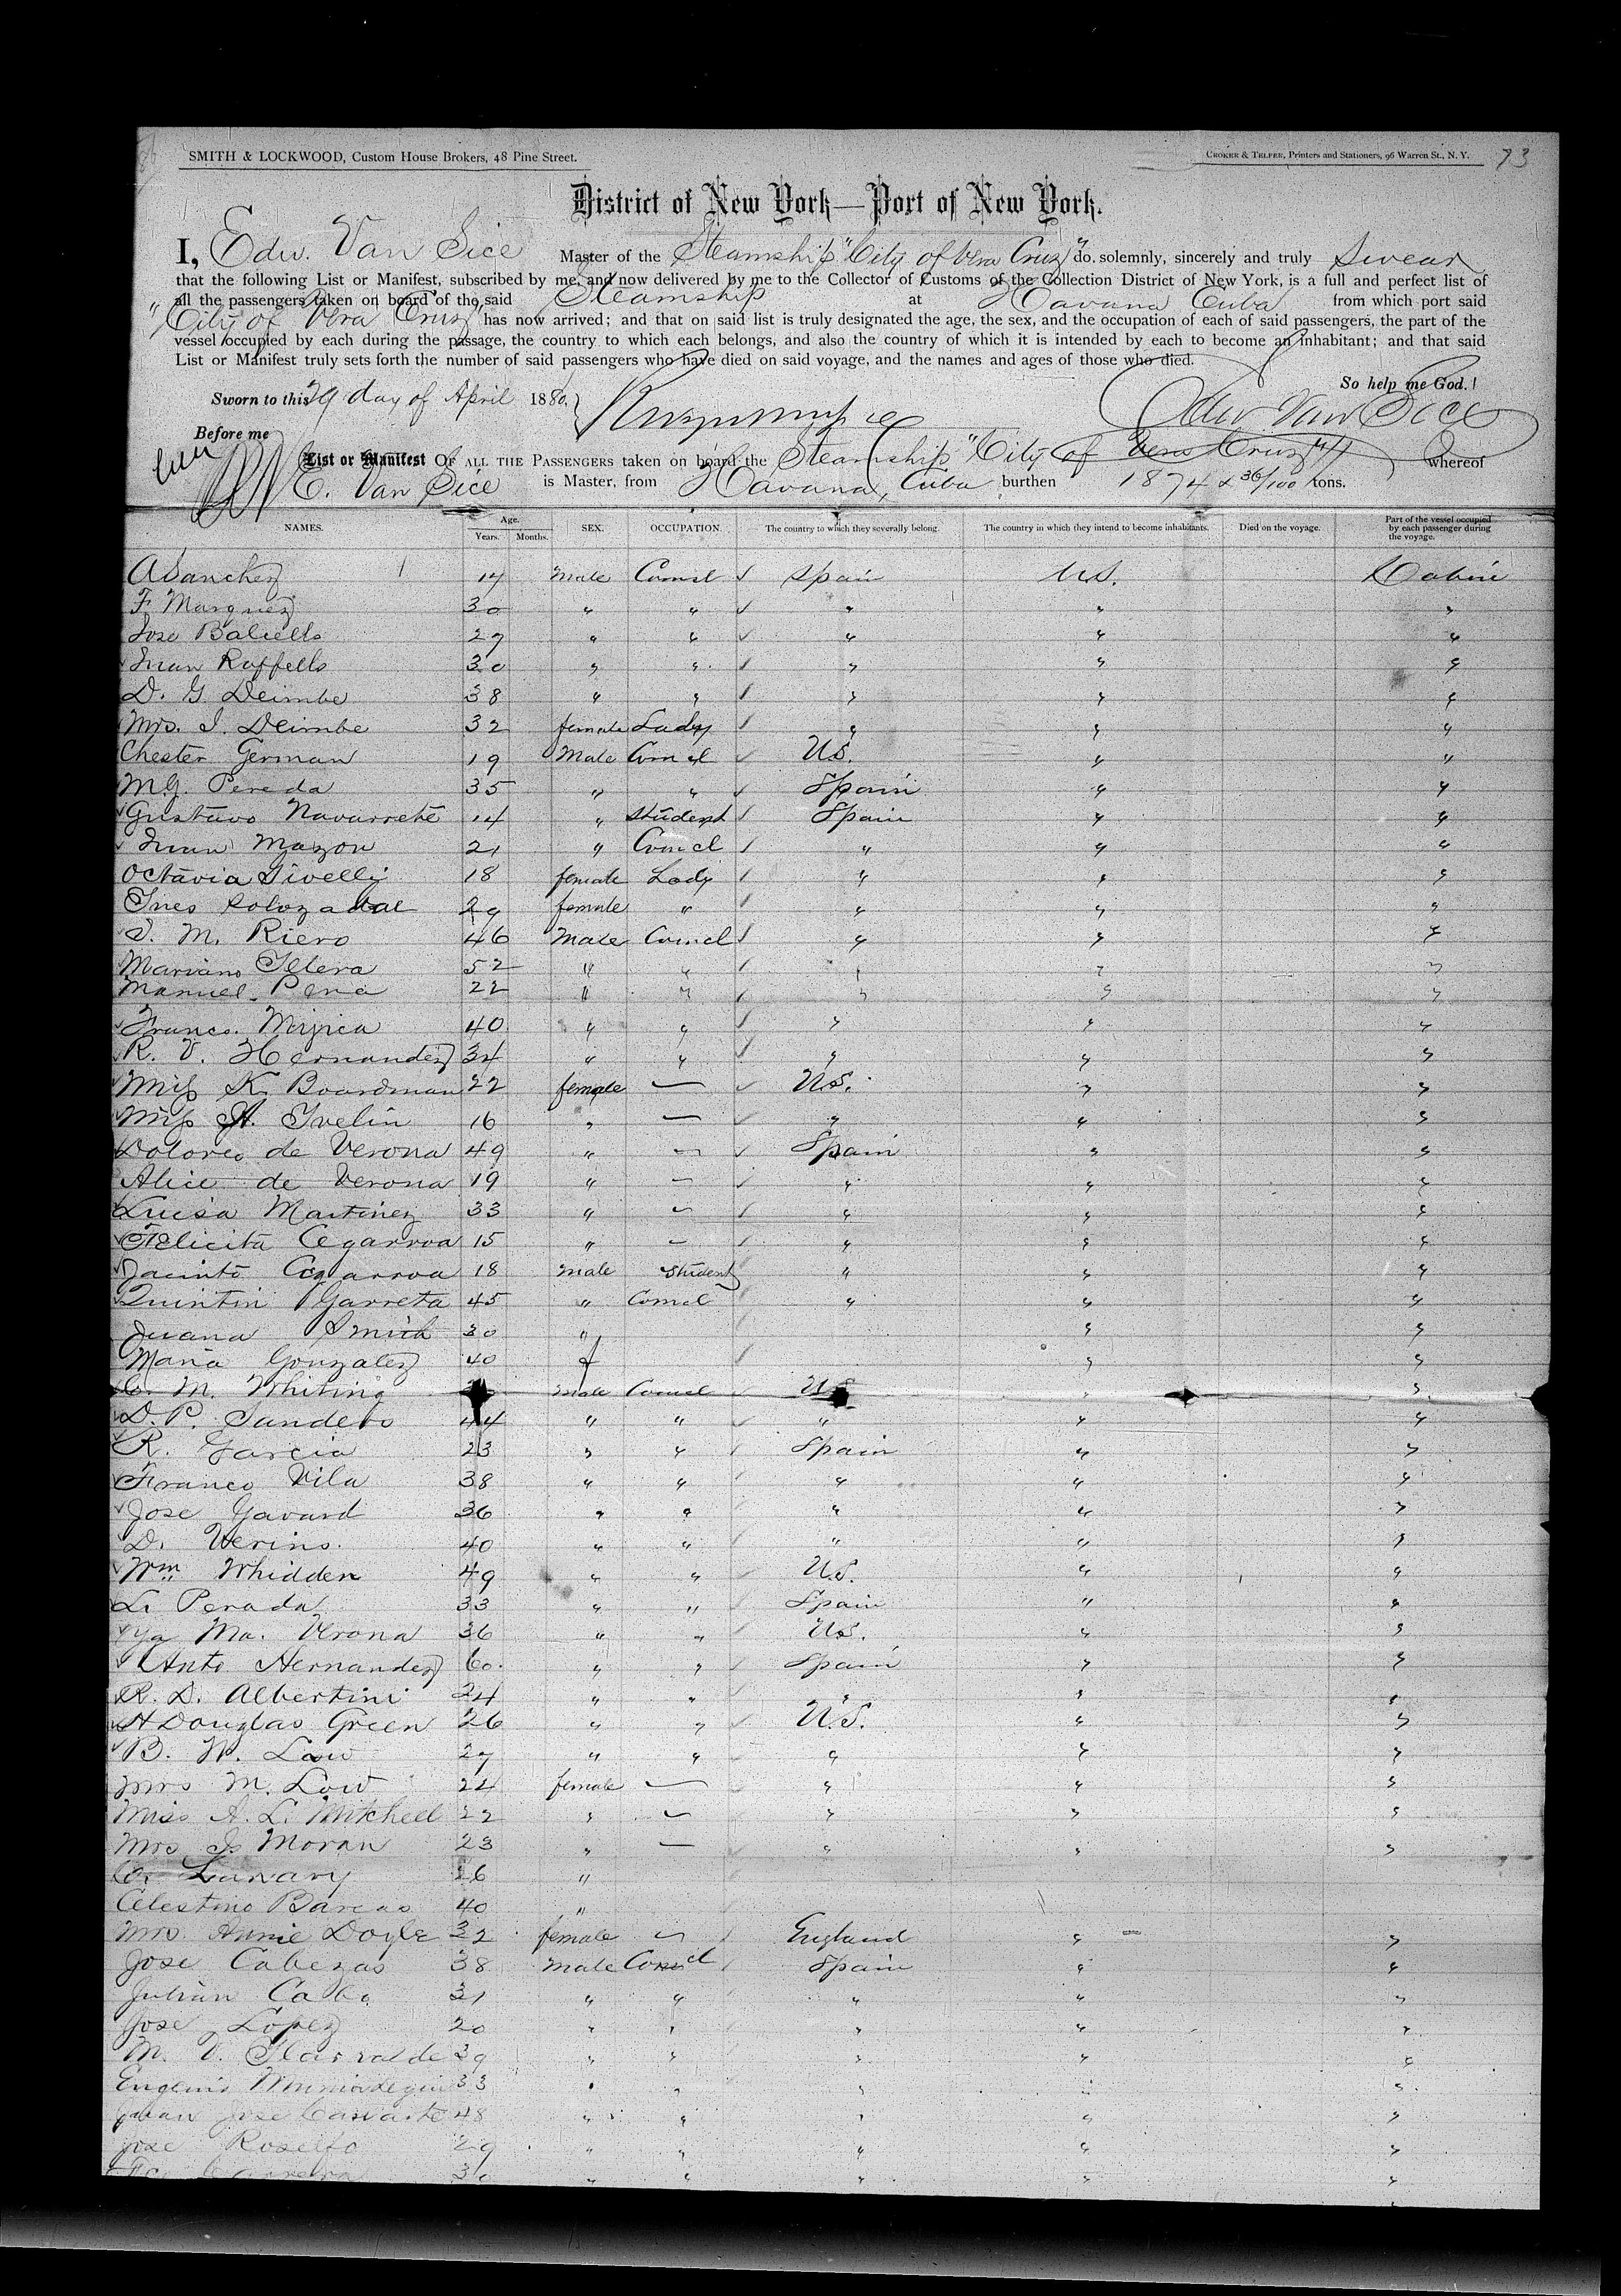 SMITH & LOCKWOOD, Custom House Brokers, 48 Pine Street.
CROKER & TELFER, Printers and Stationers, 96 Warren St., N. Y. 73
District of New York—Port of New York.
I, Edw. Van Sice Master of the Steamship "City of Vera Cruz" do solemnly, sincerely and truly Swear
that the following List or Manifest, subscribed by me, and now delivered by me to the Collector of Customs of the Collection District of New York, is a full and perfect list of
all the passengers taken on board of the said Steamship at Havana Cuba from which port said
"City of Vera Cruz" has now arrived; and that on said list is truly designated the age, the sex, and the occupation of each of said passengers, the part of the
vessel occupied by each during the passage, the country to which each belongs, and also the country of which it is intended by each to become an inhabitant; and that said
List or Manifest truly sets forth the number of said passengers who have died on said voyage, and the names and ages of those who died.
So help me God.
Sworn to this 29 day of April 1880.
Edw Van Sice
Before me
List or Manifest OF ALL THE PASSENGERS taken on board the Steamship "City of Vera Cruz" whereof
E. Van Sice is Master, from Havana, Cuba burthen 1874 & 36/100 tons.
NAMES. Age. Years. Months. SEX. OCCUPATION. The country to which they severally belong. The country in which they intend to become inhabitants. Died on the voyage. Part of the vessel occupied by each passenger during the voyage.
A Sanchez 17 Male Comcl Spain U.S. Cabin
F Marquez 30 " " " " "
Jose Balcells 27 " " " " "
Juan Raffells 30 " " " " "
D. G. Deimbe 38 " " " " "
Mrs. I. Deimbe 32 female Lady " " "
Chester German 19 Male Comcl U.S. " "
M.G. Pereda 35 " " Spain " "
Gustavo Navarrete 14 " student Spain " "
Juan Mazon 21 " Comcl " " "
Octavia Givelly 18 female Lady " " "
Ines 29 female " " " "
J. M. Riero 46 Male Comcl " " "
Mariano Illera 52 " " " " "
Manuel Pena 22 " " " " "
Franco. Mujica 40 " " " " "
R. V. Hernandez 34 " " " " "
Miss K. Boardman 22 female — U.S. " "
Miss A. Ivelin 16 " — " " "
Dolores de Verona 49 " — Spain " "
Alice de Verona 19 " — " " "
Luisa Martinez 33 " — " " "
Felicita Cegarroa 15 " — " " "
Jacinto Cegarroa 18 male student " " "
Quintin Garreta 45 " Comcl " " "
Juana Smith 30 " " "
Maria Gonzalez 40 f " "
C. M. Whiting male Comcl U.S. " "
D. P. Sanders 44 " " " " "
R. Garcia 23 " " Spain " "
Franco Vila 38 " " " " "
Jose Gavard 36 " " " " "
D. Verins. 40 " " " " "
Wm. Whidden 49 " " U.S. " "
L. Perada 33 " " Spain " "
Ya Ma. Verona 36 " " U.S. " "
Anto Hernandez 60. " " Spain " "
R. D. Albertini 24 " " " " "
H Douglas Green 26 " " U.S. " "
B. W. Low 27 " " " " "
Mrs M. Low 24 female — " " "
Miss A. L. Mitchell 22 " — " " "
Mrs J. Moran 23 " — " " "
C. Lunary 26 "
Celestino Barcas 40 "
Mrs. Annie Doyle 32 female — England " "
Jose Cabezas 38 Male Comcl Spain " "
Julian Calbo 31 " " " " "
Jose Lopez 20 " " " " "
M. V. Ilarralde 39 " " " " "
Eugenio 33 " " " " "
Juan Jose 48 " " " " "
Jose Rosello 29 " " " " "
30 " " " " "